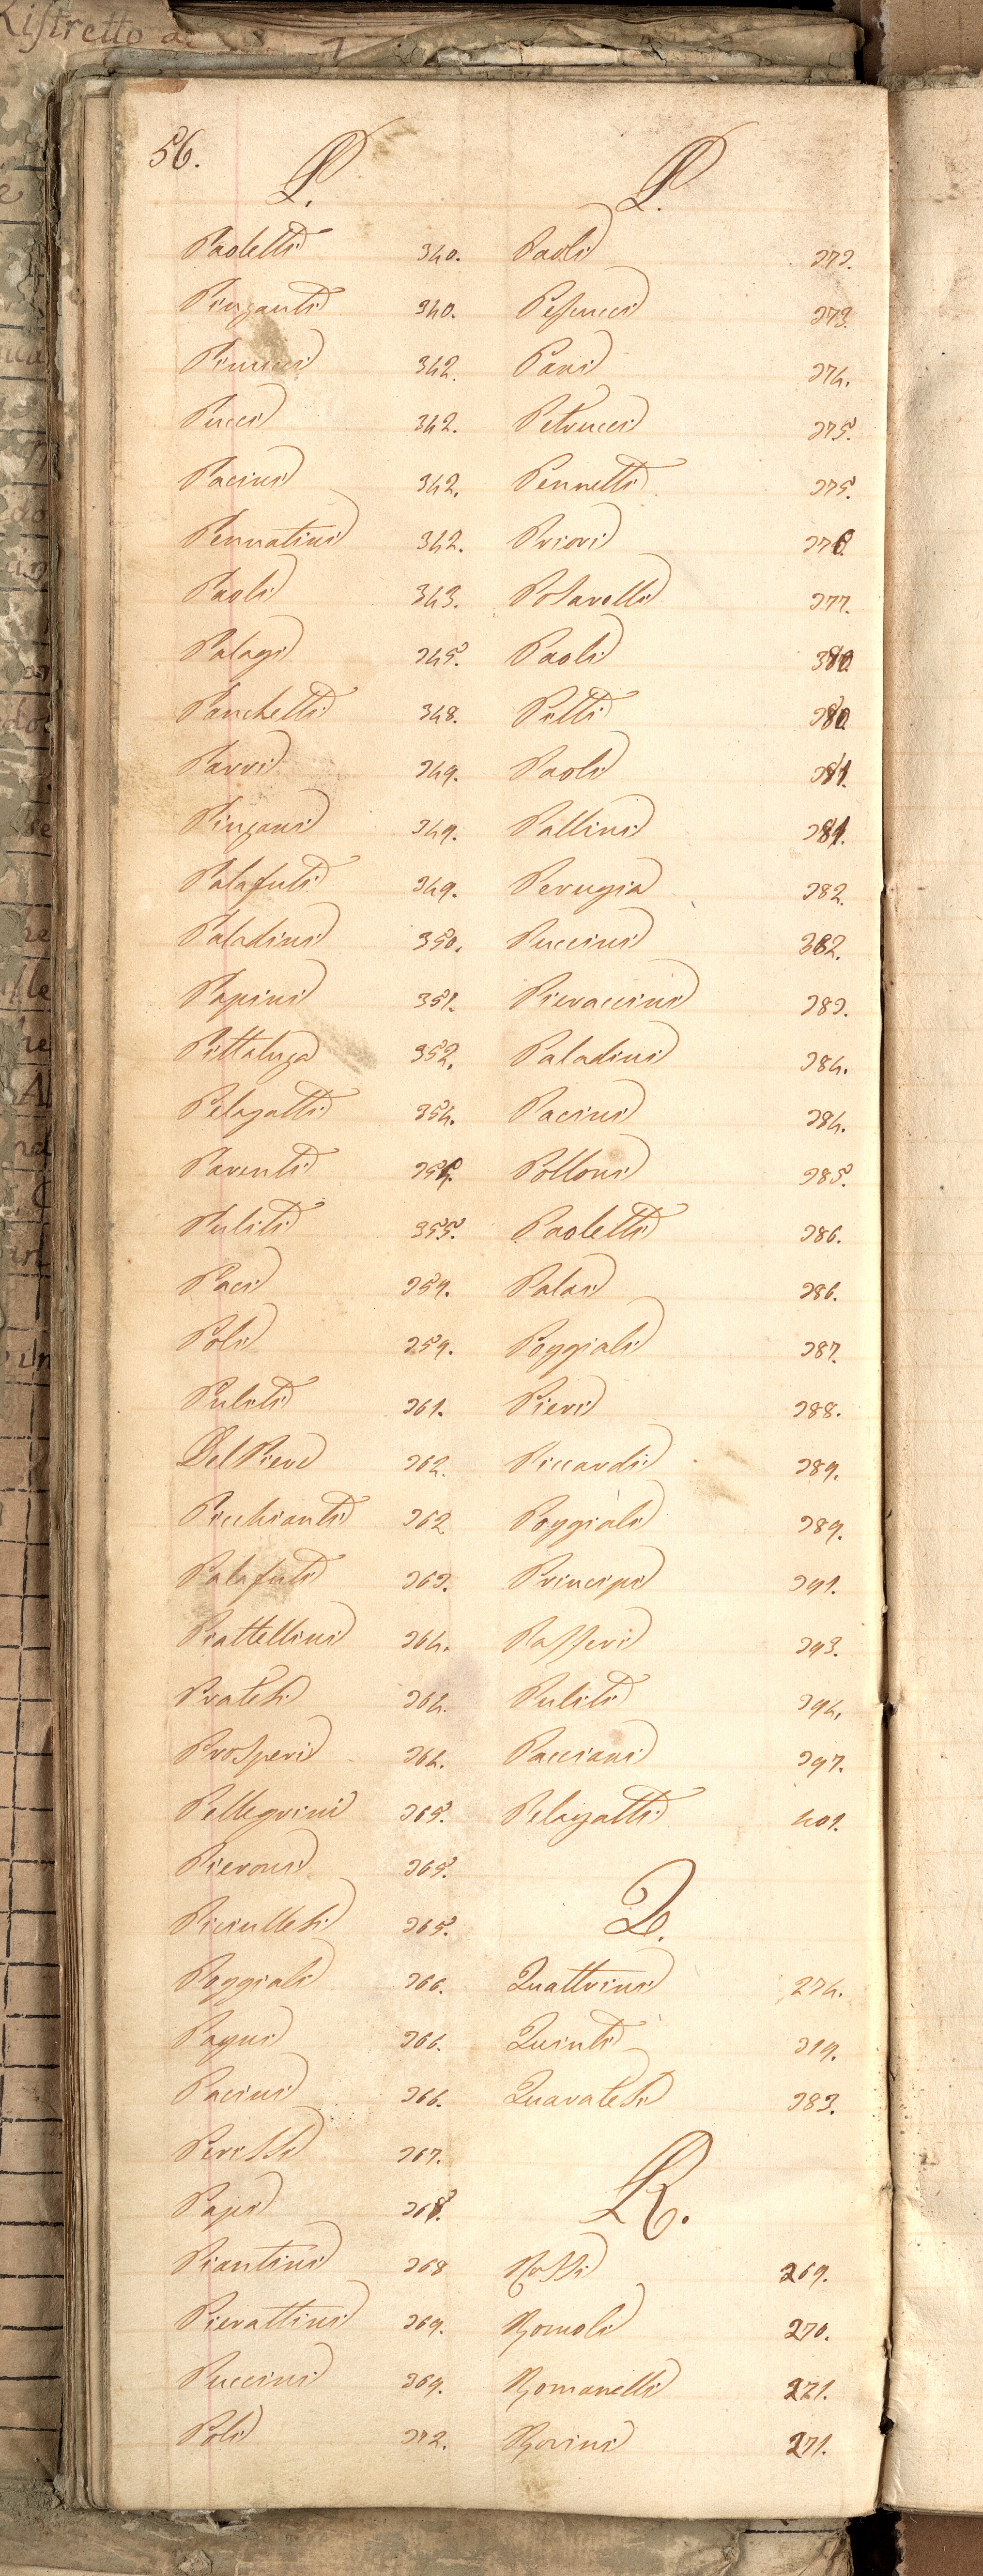 Ristretto
56.
P.
Paoletti 340.
Pinzauti 340.
Pinucci 342.
Pucci 342.
Pacini 342.
Pennatini 342.
Paoli 343.
Palagi 345.
Panchetti 348.
Parri 349.
Pinzani 349.
Palafuti 349.
Paladini 350.
Papini 351.
Pittaluga 352.
Pelagatti 354.
Parenti
Puliti 355.
Paci 359.
Poli 359.
Puliti 361.
Del Pieve 362.
Picchianti 362
Palafuti 363.
Piattellini 364.
Pratesi 364.
Prosperi 364.
Pellegrini 365.
Pieroni 365.
Piciullesi 365.
Poggiali 366.
Pagni 366.
Pacini 366.
Perissi 367.
Papi 368.
Piantini 368
Pierattini 369.
Puccini 369.
Poli 372.
P.
Paoli 373.
Pescucci 373.
Pani 374.
Petrucci 375.
Pennetti 375.
Priori 376.
Posarelli 377.
Paoli 380.
Pitti 380.
Paoli 381.
Pallini 381.
Perugia 382.
Puccini 382.
Pieraccini 383.
Paladini 384.
Pacini 384.
Polloni 385.
Paoletti 386.
Palai 386.
Poggiali 387.
Pieri 388.
Piccardi 389.
Poggiali 389.
Principi 391.
Passeri 393.
Puliti 394.
Pacciani 397.
Pelagatti 401.
Q.
Quattrini 274.
Quinti 319.
Quaratesi 383.
R.
Rossi 269.
Romoli 270.
Romanelli 271.
Rovini 271.